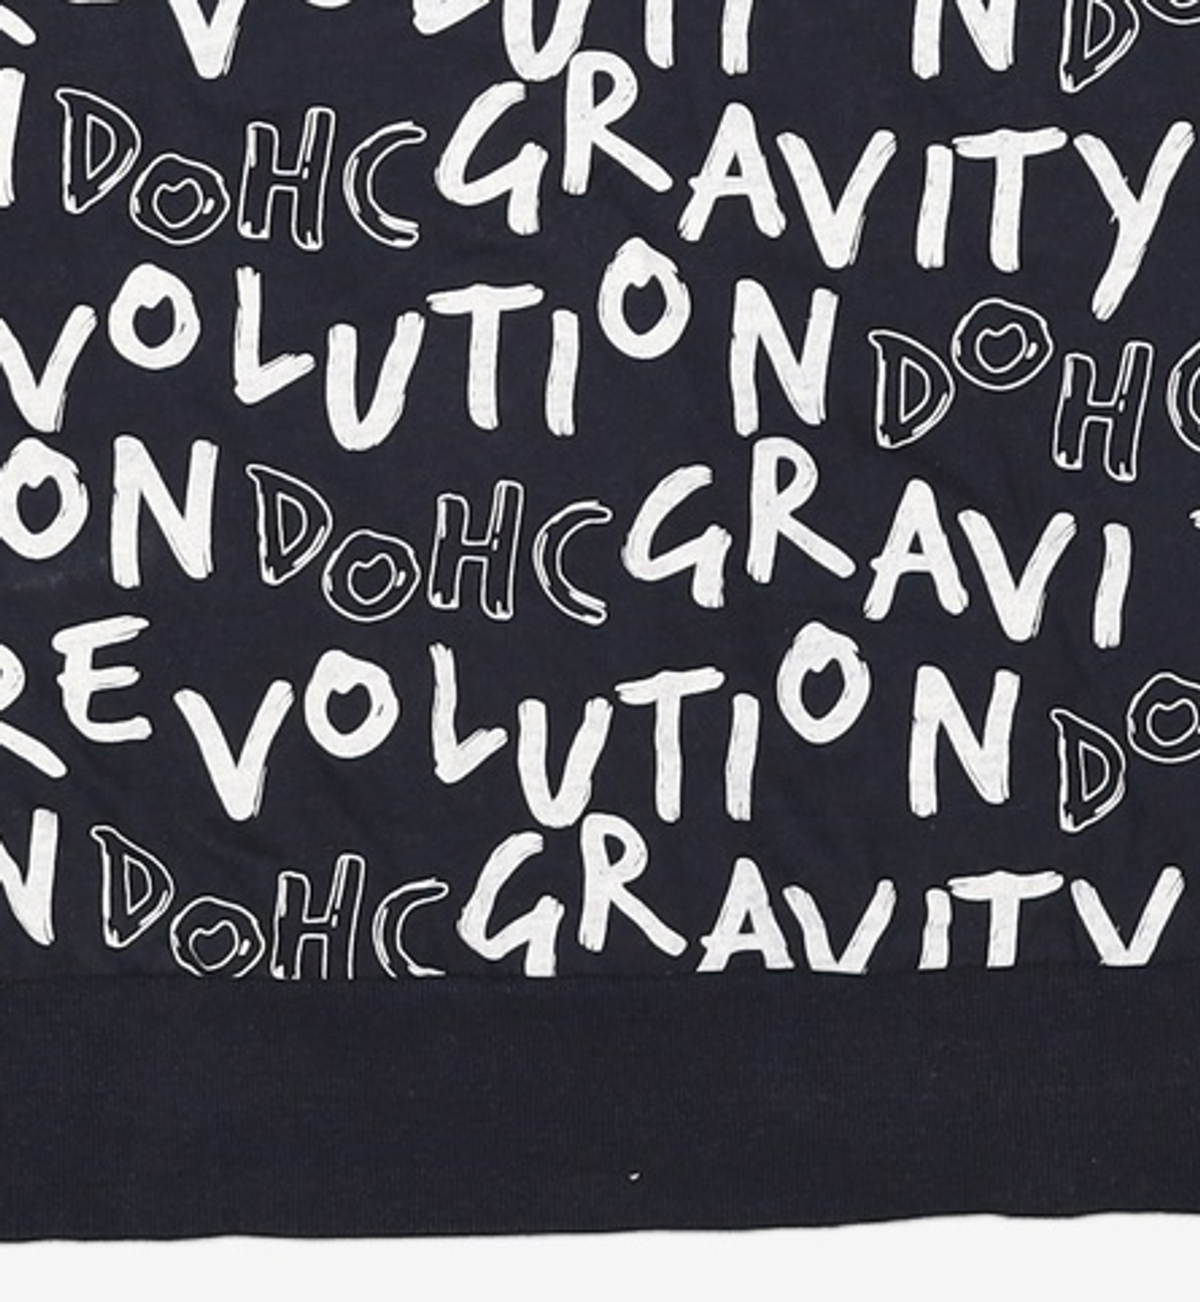 VOLUTI N D
DOHC GRAVITY
VOLUTION DOHC
ON DOHC GRAVI
REVOLUTION DO
N DOHC GRAVITY